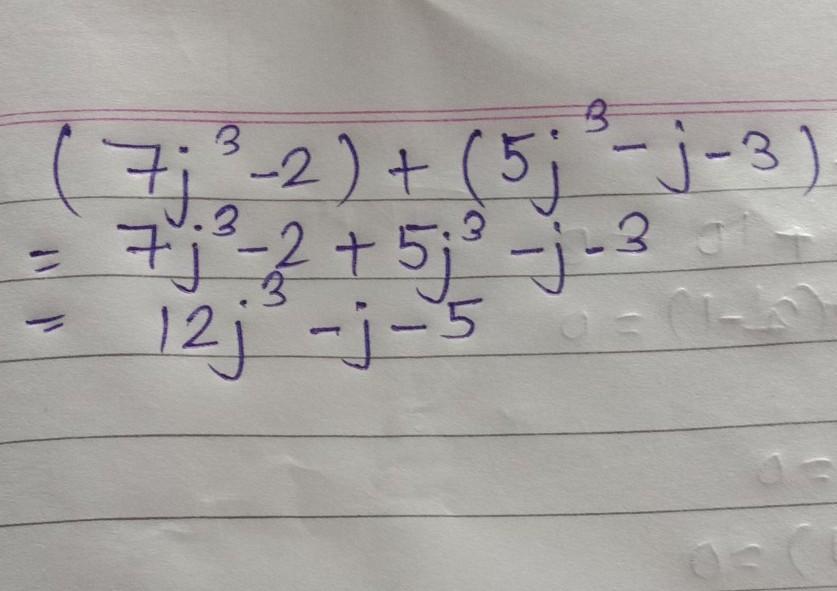 (7j³-2)+(5j³-j-3)
= 7j³-2+5j³-j-3
= 12j³-j-5